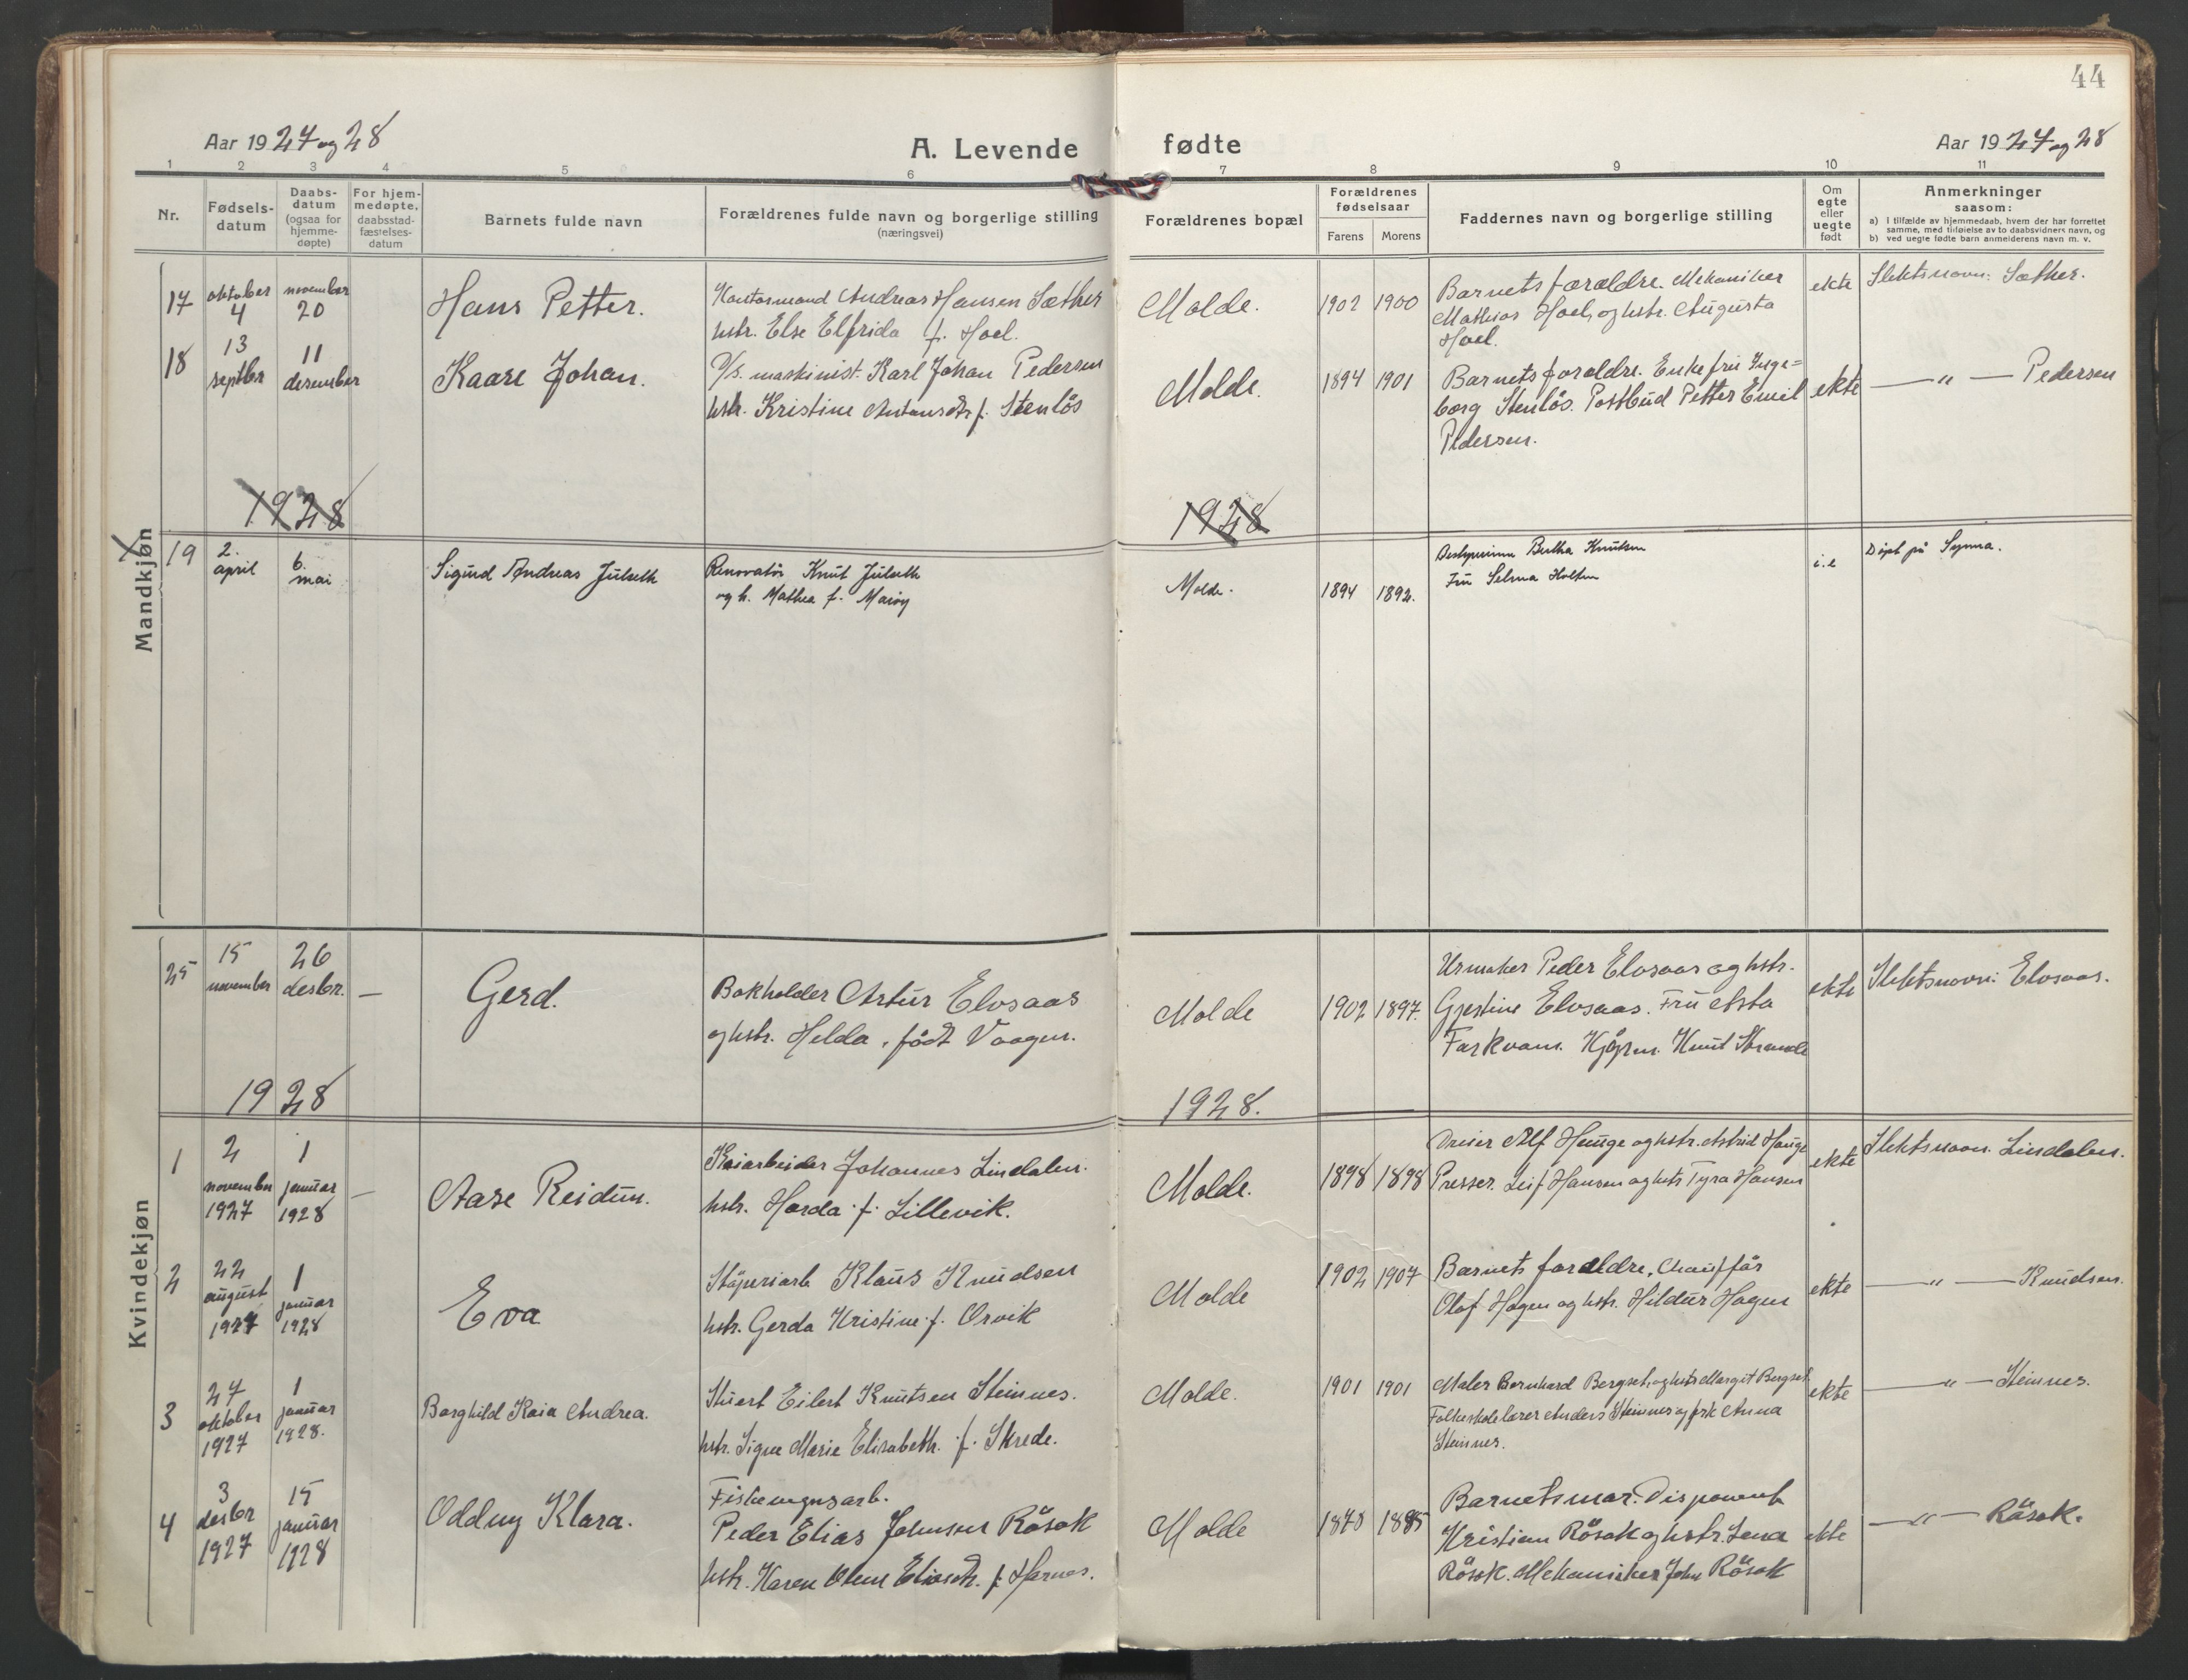 44
Aar 1927 og 28
A. Levende
fødte
Aar 1927 og 28
1 2 3 4 5 6 7 8 9 10 11
Nr.
Fødsels-
datum
Daabs-
datum
(ogsaa for
hjemme-
døpte)
For hjem-
medøpte,
daabsstad-
fæstelses-
datum
Barnets fulde navn
Forældrenes fulde navn og borgerlige stilling
(næringsvei)
Forældrenes bopæl
Forældrenes
fødselsaar
Farens
Morens
Faddernes navn og borgerlige stilling
Om
egte
eller
uegte
født
Anmerkninger
saasom:
a) I tilfælde av hjemmedaab, hvem der har forrettet
samme, med tilføielse av to daabsvidners navn, og
b) ved uegte fødte barn anmelderens navn m. v.
Mandkjøn
17
oktober
4
november
20
Hans Petter.
Kontormand Andreas Hansen Sæther
hstr. Else Elfrida f. Hoel.
Molde.
1902
1900
Barnets forældre. Mekaniker
Mathias Hoel, og hstr. Augusta
Hoel.
ekte
Slektsnavn: Sæther.
18
13
septbr
11
desember
Kaare Johan.
D/s. maskinist. Karl Johan Pedersen
hstr. Kristine Antonsdtr f. Stenlös
Molde.
1894
1901
Barnets forældre. Enkefru Inge=
borg Stenlös. Postbud Petter Emil
Pedersen.
ekte
— " — Pedersen
1928
1928
19
2.
april
6.
mai
Sigurd Andreas Julseth
Renovatør Knut Julseth
og h. Mathea f. Marøy
Molde.
1894
1892.
Bertha Knutsen
Fru Selma Holten
i.e
Döpt på
Kvindekjøn
25
15
november
26
desbr.
—
Gerd.
Bokholder Artur Elvsaas
og hstr. Helda, födt Vaagen.
Molde
1902
1897.
Urmaker Peder Elvsaas og hstr.
Gjertine Elvsaas. Fru Asta
Farkvam. Kjøpm. Knut Strande
ekte
Slektsnavn: Elvsaas.
1928
1928.
1
2
november
1927
1
januar
1928
—
Aase Reidun.
Kaiarbeider Johannes Lindalen.
hstr. Harda f. Lillevik.
Molde.
1898
1898
Dreier Alf Hauge og hstr. Astrid Hauge
Presser. Leif Hansen og hstr Tyra Hansen
ekte
Slektsnavn. Lindalen.
2
22
august
1927
1
januar
1928
Eva
Stöperiarb Klaus Knudsen
hstr. Gerda Kristine f. Orvik
Molde
1902
1907
Barnets forældre, Chaufför
Olaf Hagen og hstr. Hildur Hagen
ekte
— " — Knudsen.
3
27
oktober
1927
1
januar
1928.
Borghild Kaia Andrea.
Stuert Eilert Knutsen Steinnes.
hstr. Signe Marie Elisabeth. f. Skrede.
Molde.
1901
1901
Maler Bernhard Bergset, og hstr Margit Bergset
Folkeskolelærer Anders Steinnes og frk Anna
Steinnes.
ekte
— " — Steinnes.
4
3
desbr
1927
15
januar
1928
Oddny Klara.
Fiskevegnsarb.
Peder Elias Johnsen Rösok
hstr. Karen Oline Eliasdtr. f. Harnes.
Molde
1878
1885
Barnets mor. Disponent
Kristian Rösok og hstr. Lena
Rösok. Mekaniker John Rösok
ekte
— " — Rösok.